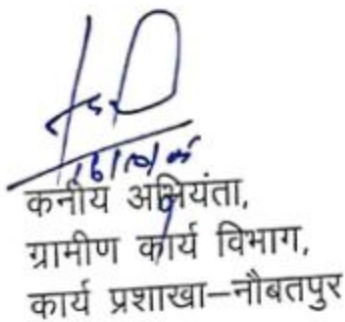 16/10/05
कनीय अभियंता,
ग्रामीण कार्य विभाग,
कार्य प्रशाखा–नौबतपुर